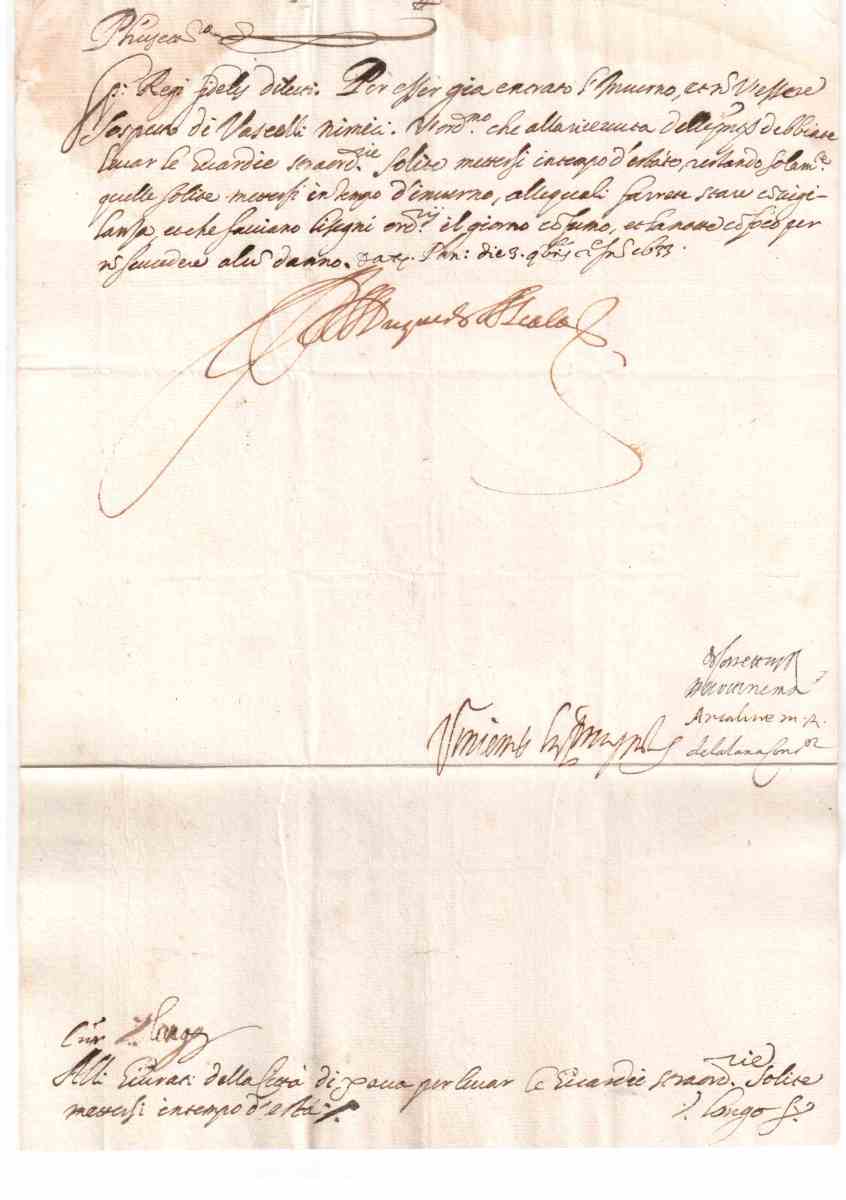 sp: Regi fidelis dilecti. Per esser gia entrato l'Inverno, et nõ v'essere
sospetto di Vascelli nimici. V'ord.mo che alla ricevuta della p̃nte debbiate
levar le Guardie straord.rie solite mettersi in tempo d'estate, restando solam.te
quelle solite mettersi in tempo d'inverno, alle quali farrete stare cõ vigi-
lanza et che facciano li segni ord.rij il giorno cõ fumo, et la notte cõ foco per
nõ succedere alcũ danno. Dat. Pan: die 3. 9bris 1633.
El Duque de Alcala
Cur Longo
Alli Giurati della Città di per levar le Guardie straord.rie solite
mettersi in tempo d'està
Longo